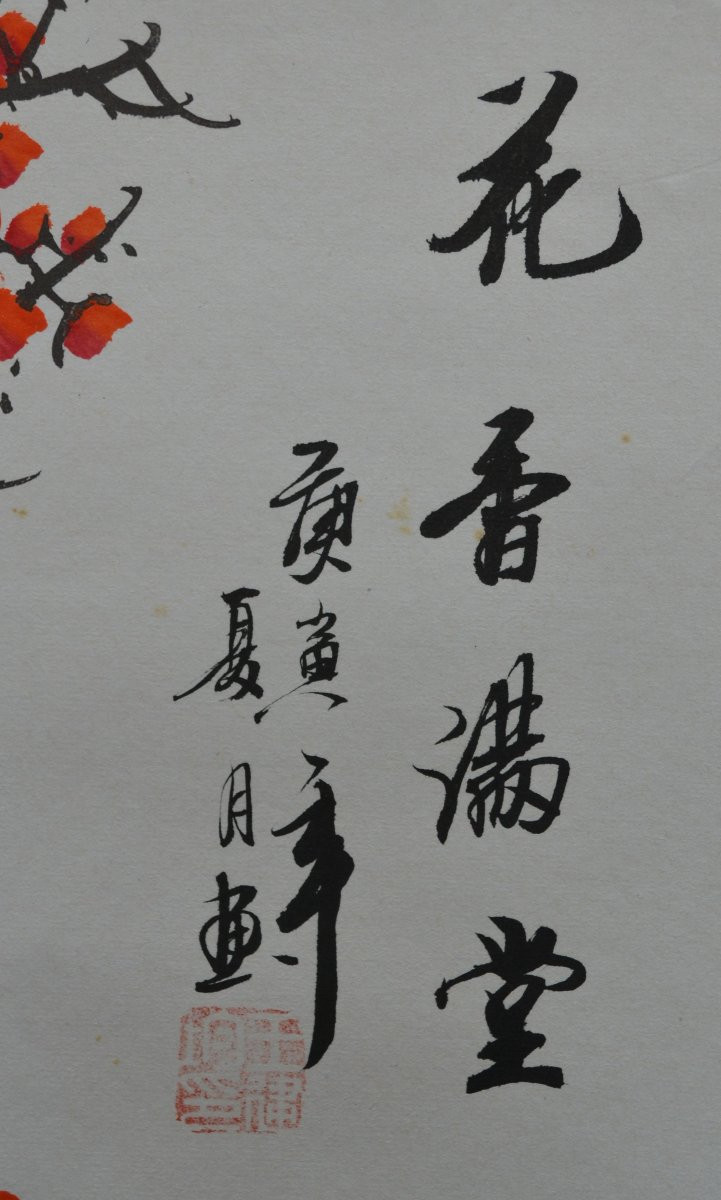 花香满堂
庚寅年
夏月画